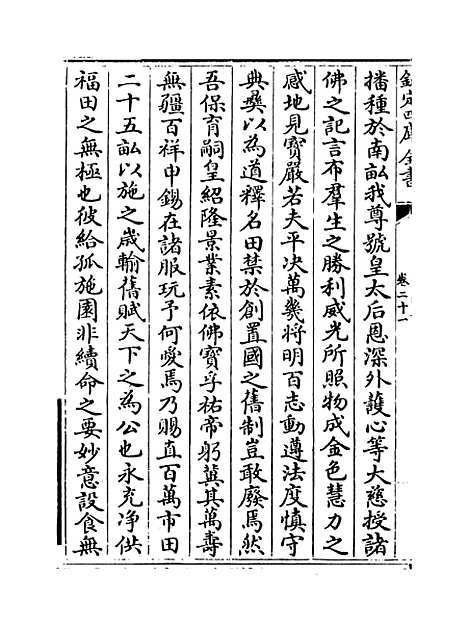 欽定四庫全書
卷二十一
播種於南畝我尊號皇太后恩深外護心等大慈授諸
佛之記言布羣生之勝利威光所照物成金色慧力之
感地見寶嚴若夫平決萬幾將明百志動遵法度慎守
典彝以為道釋名田禁於創置國之舊制豈敢廢焉然
吾保育嗣皇紹隆景業素依佛寶孚祐帝躬冀其萬壽
無疆百祥申錫在諸服玩予何愛焉乃賜直百萬市田
二十五畝以施之歲輸舊賦天下之為公也永充净供
福田之無極也彼給孤施園非續命之要妙意設食無